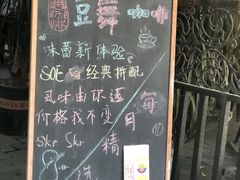 豆舞咖啡
味蕾新体验
SOE vs 经典拼配
风味由你选
价格我不变
Skr Skr
每日精选